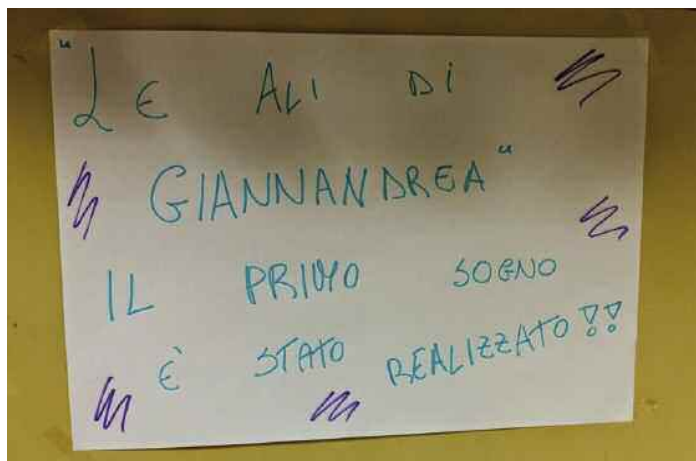 "LE ALI DI
GIANNANDREA"
IL PRIMO SOGNO
È STATO REALIZZATO!!